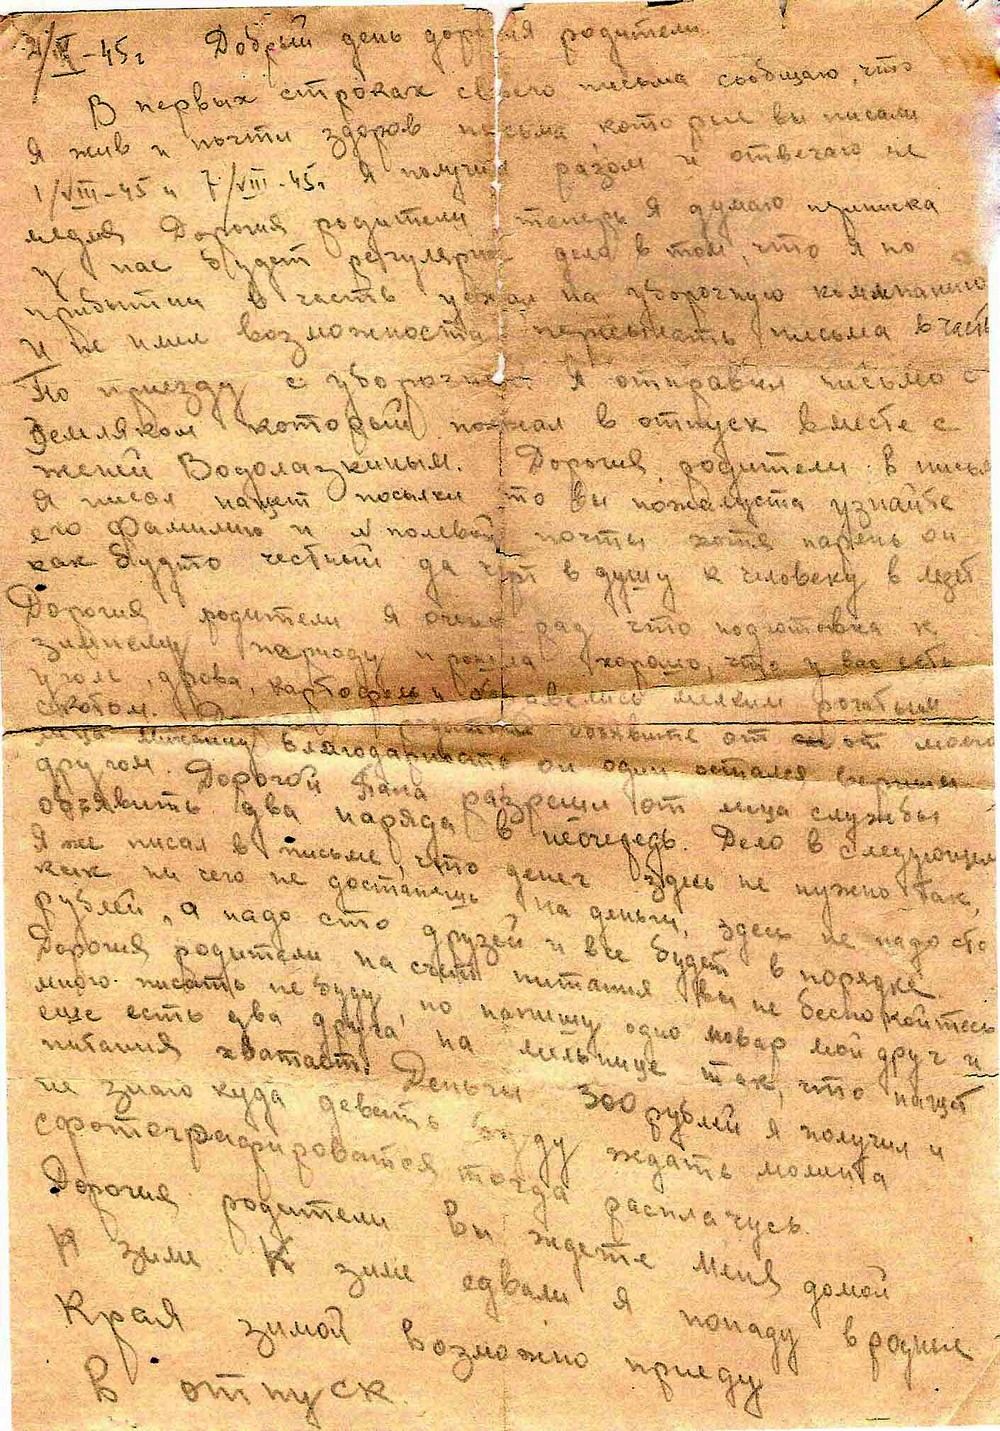 2/IX-45г Добрый день дорогия родители
В первых строках своего письма сообщаю, что
Я жив и почти здоров письма которые вы писали
1/VIII-45 и 7/VIII-45г Я получил разом и отвечаю не
медля Дорогия родители теперь я думаю
у нас будет регулярно дело в том, что я по
прибытии в часть уехал на уборочную
И не имел возможности пересылать письма в часть
По приезду с уборочной Я отправил письмо с
Земляком который поехал в отпуск вместе с
женей Водолазкиным. Дорогия родители в
Я писал нащет посылки то вы пожалуста узнайте
его Фамилию и N полевой почты хотя парень он
как будто честный да чорт в душу к человеку в лезет
Дорогия родители я очень рад что подготовка к
зимнему периоду прошла хорошо, что у вас есть
уголь, дрова, картофель и обзавелись мелким рогатым
скотом. родители объявите от от моего
лица благодарность он один остался верным
другом. Дорогой Папа разреши от лица службы
объявить два наряда в неочередь. Дело в следующем
Я же писал в письме, что денег здесь не нужно так,
как ни чего не достанешь на деньги, здесь не надо сто
рублей, а надо сто друзей и все будет в порядке
Дорогия родители на счет питания вы не беспокойтесь
много писать не буду, но напишу одно повар мой друг и
еще есть два друга на мельнице так, что нащет
питания хватает. Деньги 300 рублей я получил и
не знаю куда девать буду ждать момента
сфотографироватся тогда расплачусь.
Дорогия родители вы ждете меня домой
К зиме. К зиме едвали я попаду в родные
Края зимой возможно приеду
В отпуск.